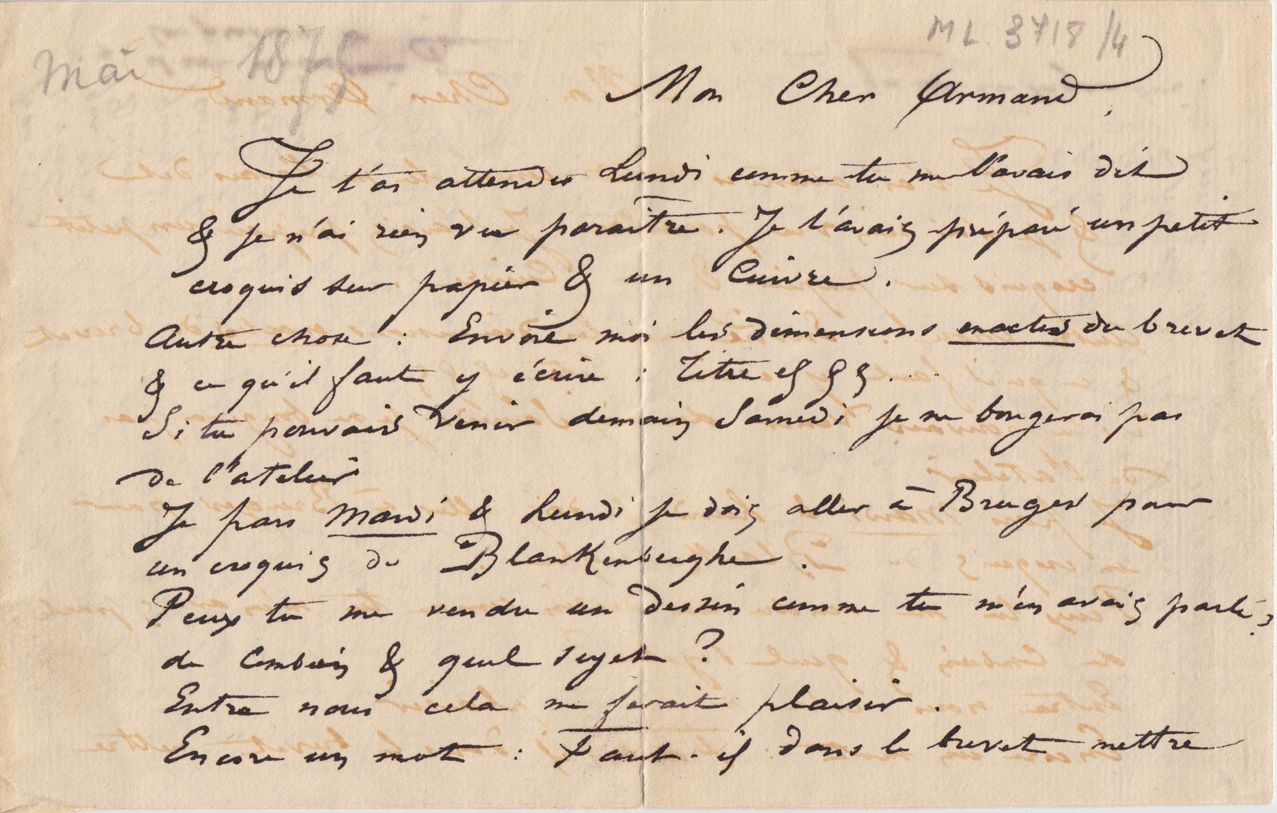 Mai 1875
ML. 3718/4
Mon Cher Armand,
Je t'ai attendu Lundi comme tu me l'avais dit
& je n'ai rien vu paraître. Je t'avais préparé un petit
croquis sur papier & un Cuivre.
Autre chose : Envoie moi les dimensions exactes du brevet
& ce qu'il faut y écrire : Titre &
Si tu pouvais venir demain Samedi je ne bougerai pas
de l'atelier
Je pars Mardi & Lundi je dois aller à Bruges pour
un croquis de Blankenberghe.
Peux tu me vendre un dessin comme tu m'en avais parlé ?
de combien & quel sujet ?
Entre nous cela me ferait plaisir.
Encore un mot : Faut-il dans le brevet mettre